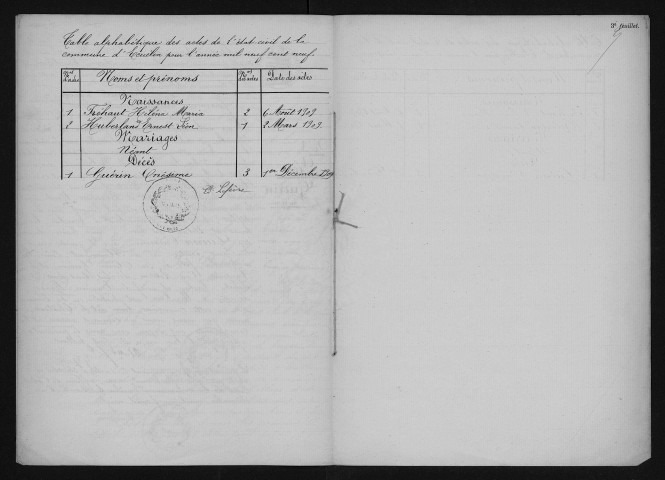 Table alphabétique des actes de l'état civil de la
commune d' pour l'année mil neuf cent neuf.
Nos d'ordre Noms et prénoms Nos des actes Date des actes
Naissances
1 Fréhaut Hélène Maria 2 6 Août 1909
2 Huberland Ernest Léon 1 2 Mars 1909.
Mariages
Néant
Décès
1 Guérin Onésime 3 1er Décembre 1909
Lefèvre
3e feuillet.